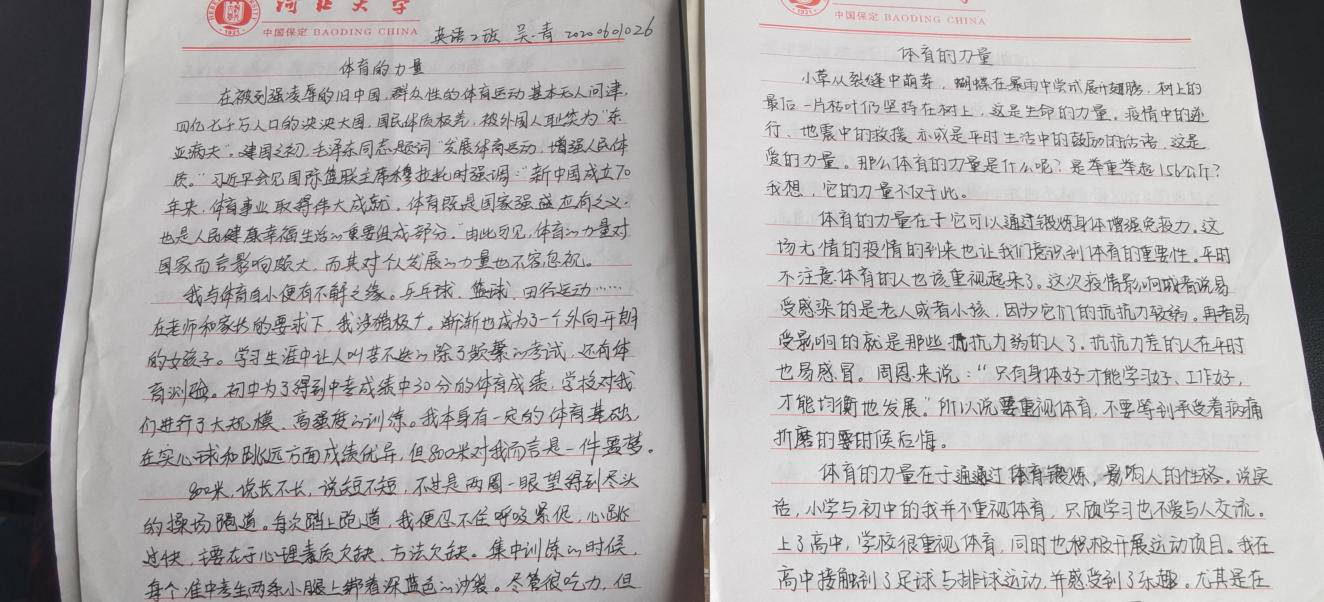 河北大学
中国保定 BAODING CHINA
英语2班 吴青 20200601026
体育的力量
在被列强凌辱的旧中国,群众性的体育运动基本无人问津,
四亿七千万人口的泱泱大国,国民体质极差,被外国人耻笑为“东
亚病夫”。建国之初,毛泽东同志题词“发展体育运动,增强人民体
质。”习近平会见国际篮联主席穆拉托时强调:“新中国成立70
年来,体育事业取得伟大成就。体育既是国家强盛应有之义,
也是人民健康幸福生活的重要组成部分。”由此可见,体育的力量对
国家而言影响颇大,而其对个人发展的力量也不容忽视。
我与体育自小便有不解之缘。乒乓球、篮球、田径运动……
在老师和家长的要求下,我涉猎极广。渐渐也成为了一个外向开朗
的女孩子。学习生涯中让人叫苦不迭的除了频繁的考试,还有体
育测验。初中为了得到中考成绩中30分的体育成绩,学校对我
们进行了大规模、高强度的训练。我本身有一定的体育基础,
在实心球和跳远方面成绩优异,但800米对我而言是一件噩梦。
800米,说长不长,说短不短,不过是两圈一眼望得到尽头
的操场跑道。每次踏上跑道,我便忍不住呼吸累促,心跳
过快,主要在于心理素质欠缺、方法欠缺。集中训练的时候,
每个准中考生两条小腿上绑着深蓝色的沙袋。尽管很吃力,但
中国保定 BAODING CHINA
体育的力量
小草从裂缝中萌芽,蝴蝶在暴雨中尝试展开翅膀,树上的
最后一片枯叶仍坚持在树上,这是生命的力量。疫情中的逆
行、地震中的救援亦或是平时生活中的鼓励的话语,这是
爱的力量。那么体育的力量是什么呢?是举重举起156公斤?
我想,它的力量不仅于此。
体育的力量在于它可以通过锻炼身体增强免疫力。这
场无情的疫情的到来也让我们意识到体育的重要性。平时
不注意体育的人也该重视起来了。这次疫情影响或者说易
受感染的是老人或者小孩,因为它们的抵抗力较弱。再者易
受影响的就是那些抵抗力弱的人了。抵抗力差的人在平时
也易感冒。周恩来说:“只有身体好才能学习好、工作好,
才能均衡地发展。”所以说要重视体育,不要等到承受着病痛
折磨的时候后悔。
体育的力量在于通过体育锻炼,影响人的性格。说实
话,小学与初中的我并不重视体育,只顾学习也不爱与人交流。
上了高中,学校很重视体育,同时也积极开展运动项目。我在
高中接触到了足球与排球运动,并感受到了乐趣。尤其是在